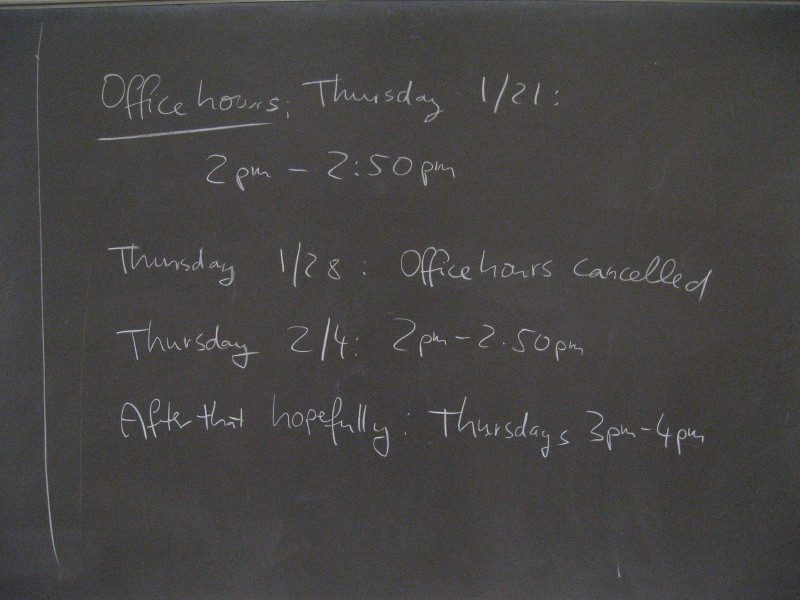 Office hours; Thursday 1/21:
2pm - 2:50pm
Thursday 1/28: Office hours cancelled
Thursday 2/4: 2pm - 2.50pm
After that hopefully: Thursdays 3pm-4pm